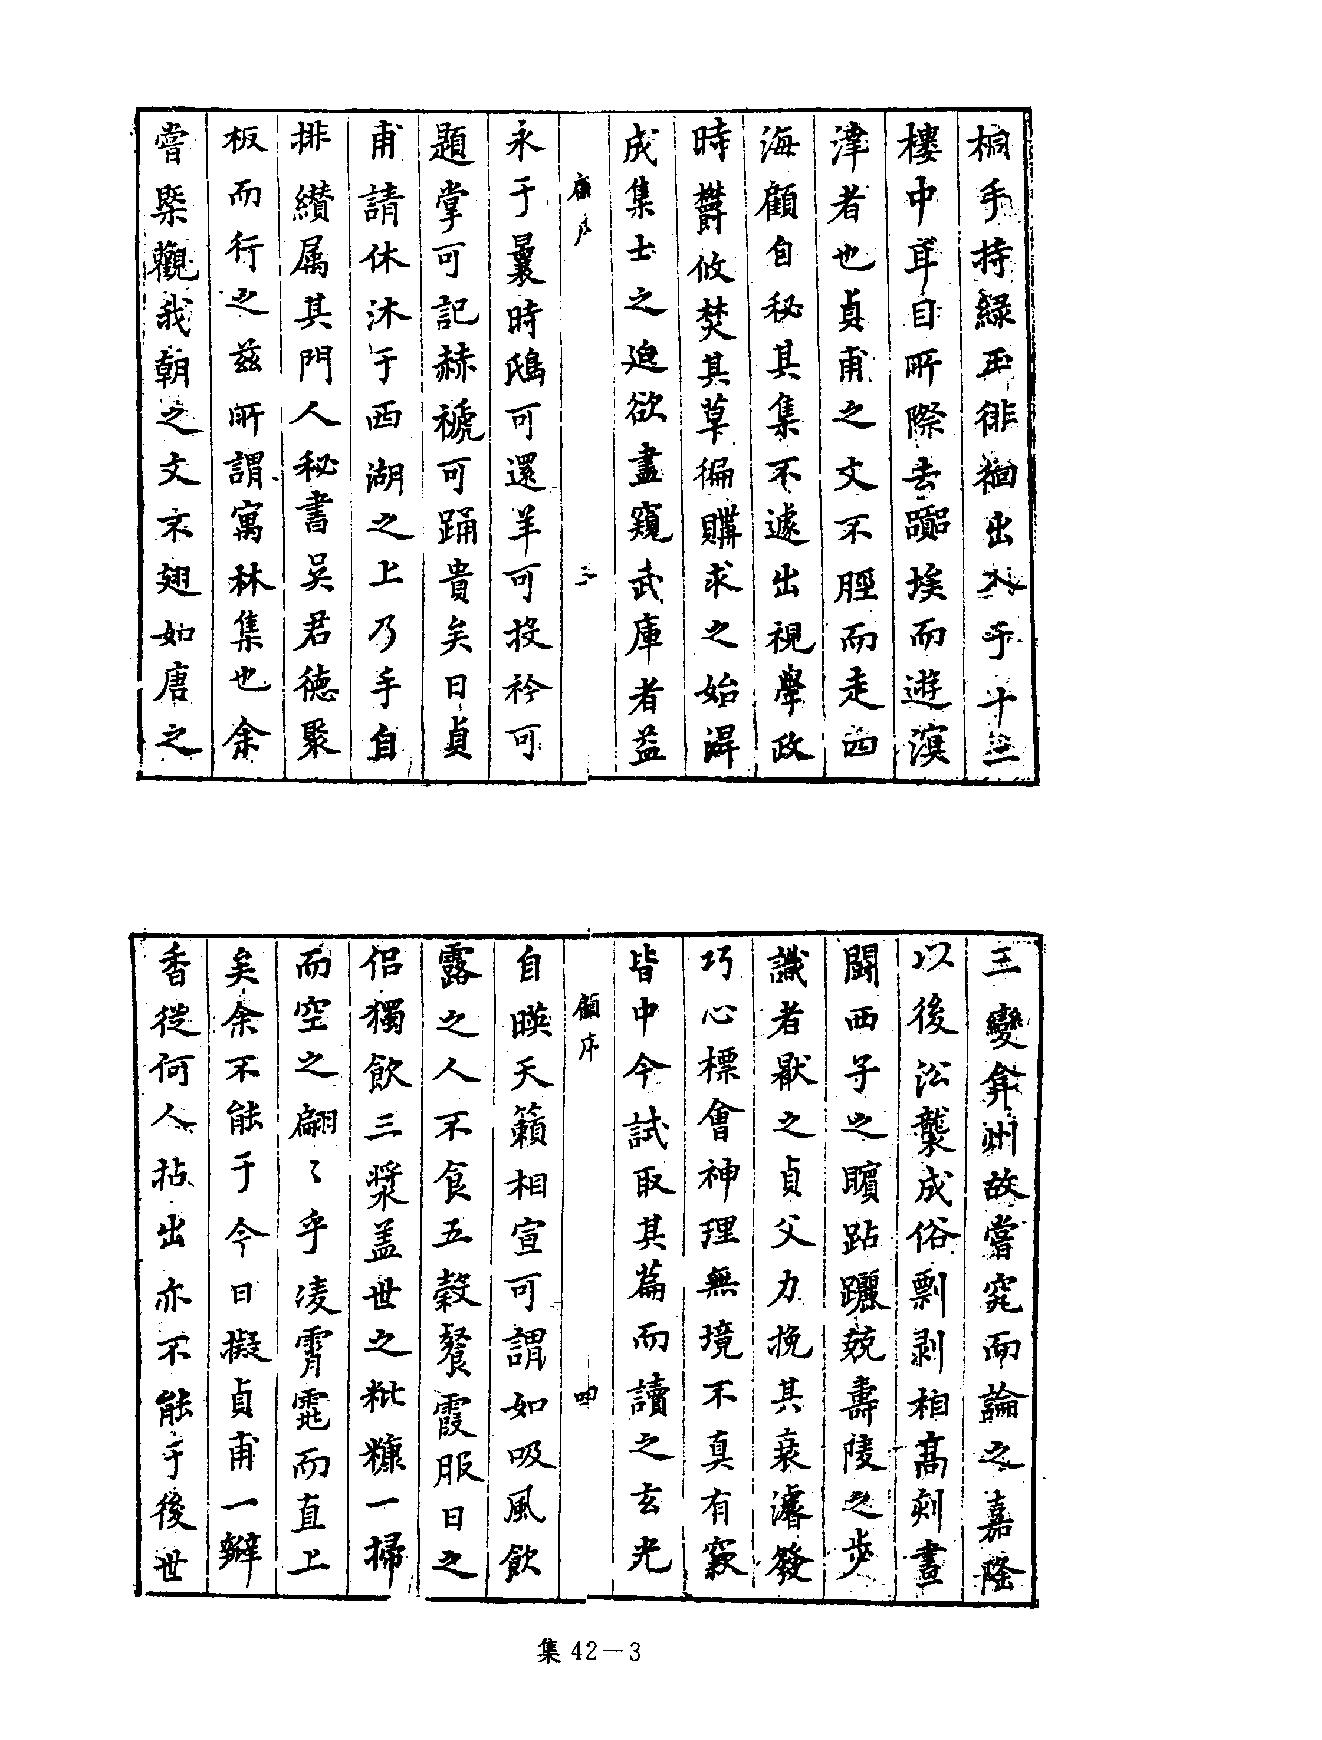 桐手持綠玉徘徊出入乎十二
樓中耳目所際去囂埃而遊溟
涬者也貞甫之文不脛而走四
海顧自秘其集不遽出視學政
時欝攸焚其草徧購求之始淂
成集士之迫欲盡窺武庫者益
顧序 三
永于曩時鴟可還羊可投衿可
題掌可記赫褫可踊貴矣日貞
甫請休沐于西湖之上乃手自
排纘属其門人秘書吳君德聚
板而行之茲所謂寓林集也余
嘗槩觀我朝之文不翅如唐之
三變弇州故嘗究而論之嘉隆
以後沿襲成俗剽剥相高刻畫
闘西子之矉跕躧兢壽陵之步
識者厭之貞父力挽其衰濬發
巧心標會神理無境不真有窾
皆中今試取其篇而讀之玄光
顧序 四
自暎天籟相宣可謂如吸風飲
露之人不食五穀餐霞服日之
侣獨飲三漿盖世之粃糠一掃
而空之翩〻乎凌霄霓而直上
矣余不能于今日擬貞甫一瓣
香從何人拈出亦不能乎後世
集 42－3